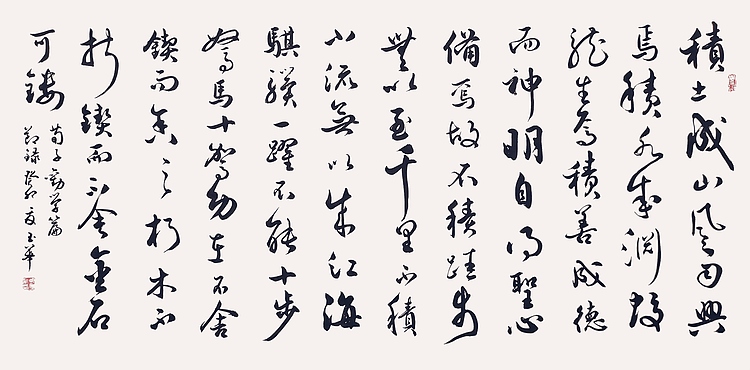 積土成山風雨興
焉積水成淵蛟
龍生焉積善成德
而神明自得聖心
備焉故不積跬步
無以至千里不積
小流無以成江海
騏驥一躍不能十步
駑馬十駕功在不舍
鍥而舍之朽木不
折鍥而不舍金石
可鏤
荀子勸學篇
節録癸卯夏玉華